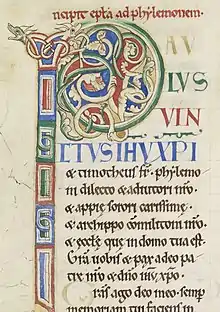 ncipit epła ad phylemonem.
PAU
LUS
VIN
CTUS IHU XPI
& timotheus fr̄. phylemo
ni dilecto & adiutori nr̄o
& appie sorori carissime.
& archippo commilitoni nr̄o.
& ecclę que in domo tua est.
Gr̄a uobis & pax a deo pa
tre nr̄o & dn̄o ihu xp̄o.
Gras ago deo meo. semp̄
memoriam tui faciens in